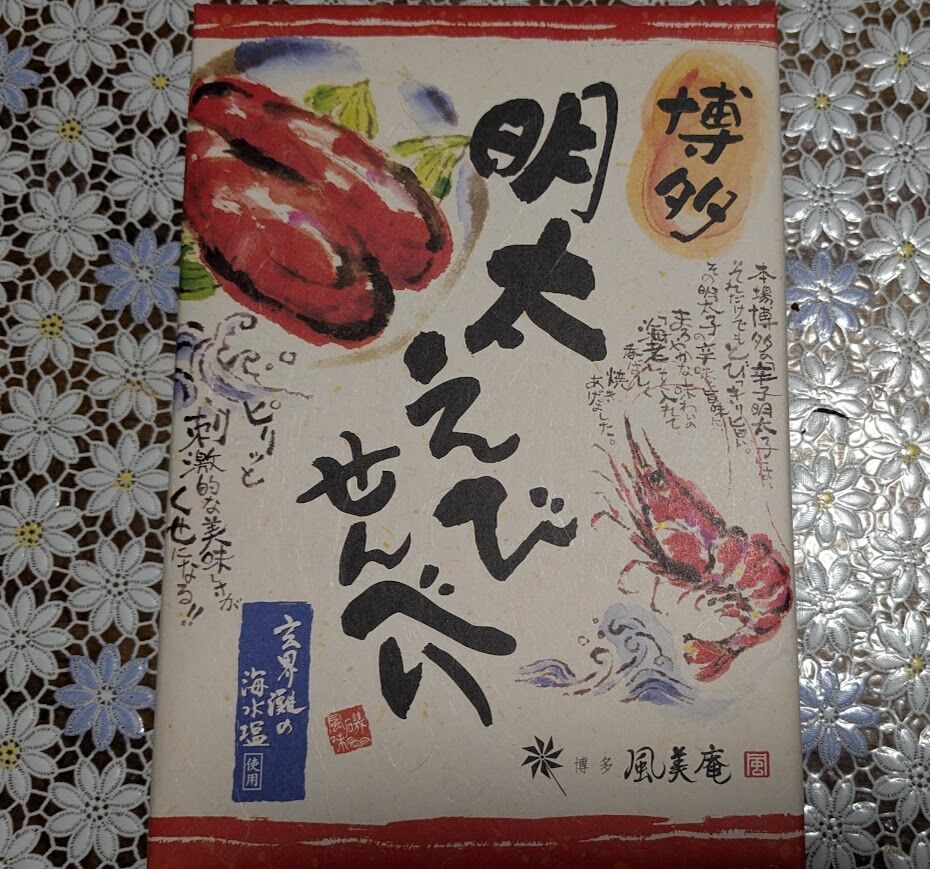 博多
明太えび
せんべい
本場博多の辛子明太子は、
それだけでもとびっきり上品。
その明太子の辛味を意味に、
まろやかな味わいの
「海老」を入れて、
香ばしく
焼き
あげました。
ピリッと
刺激的な美味しさが
くせになる!!
玄界灘の
海水塩
使用
磯
風味
博多 風美庵
風